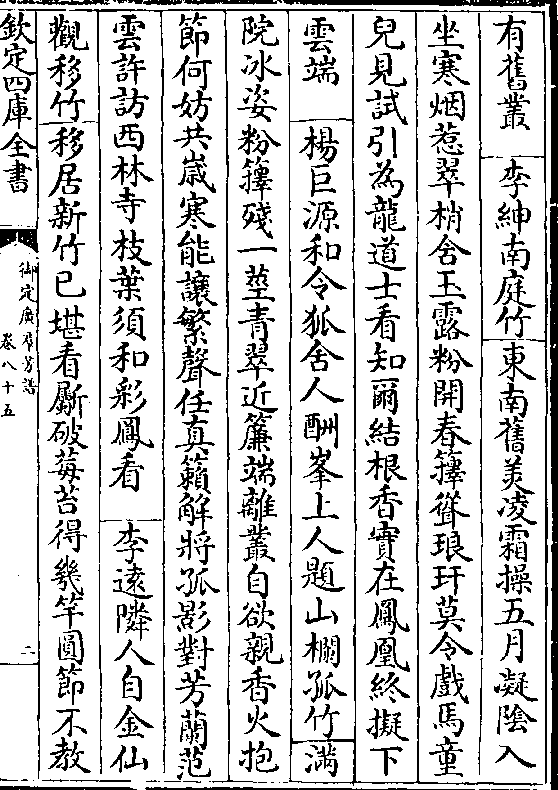 有舊叢　李紳南庭竹　東南舊美凌霜操五月凝陰入
坐寒烟惹翠梢含玉露粉開春籜聳琅玕莫令戲馬童
兒見試引為龍道士看知爾結根香實在鳳凰終擬下
雲端　楊巨源和令狐舍人酬峯上人題山欄孤竹　滿
院冰姿粉籜殘一莖青翠近簾端離叢自欲親香火抱
節何妨共歲寒能讓繁聲任真籟解將孤影對芳蘭范
雲許訪西林寺枝葉須和彩鳳看　李遠隣人自金仙
觀移竹　移居新竹已堪看斸破莓苔得幾竿圓節不教
欽定四庫全書
御定廣羣芳譜
卷八十五
二